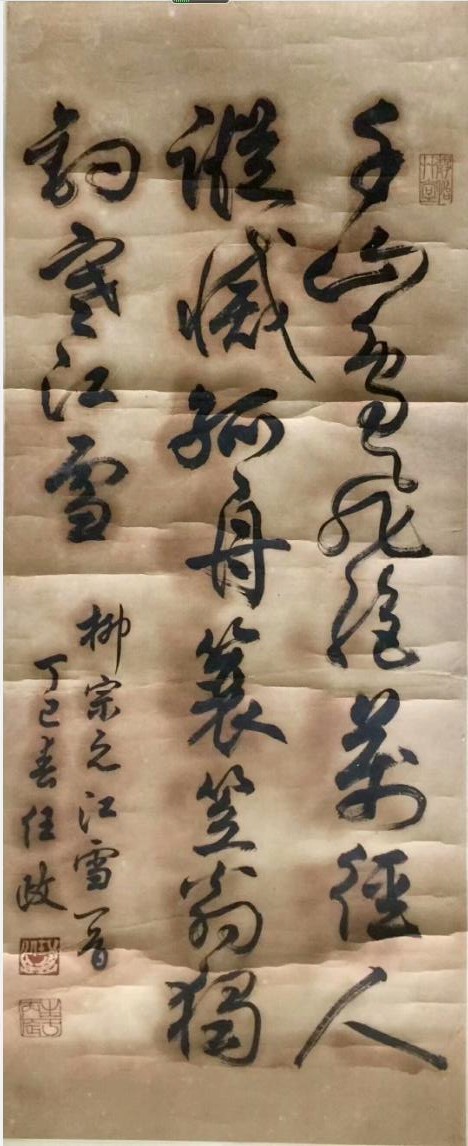 千山鳥飛絶萬徑人
蹤滅孤舟蓑笠翁獨
釣寒江雪
柳宗元江雪一首
丁巳春任政